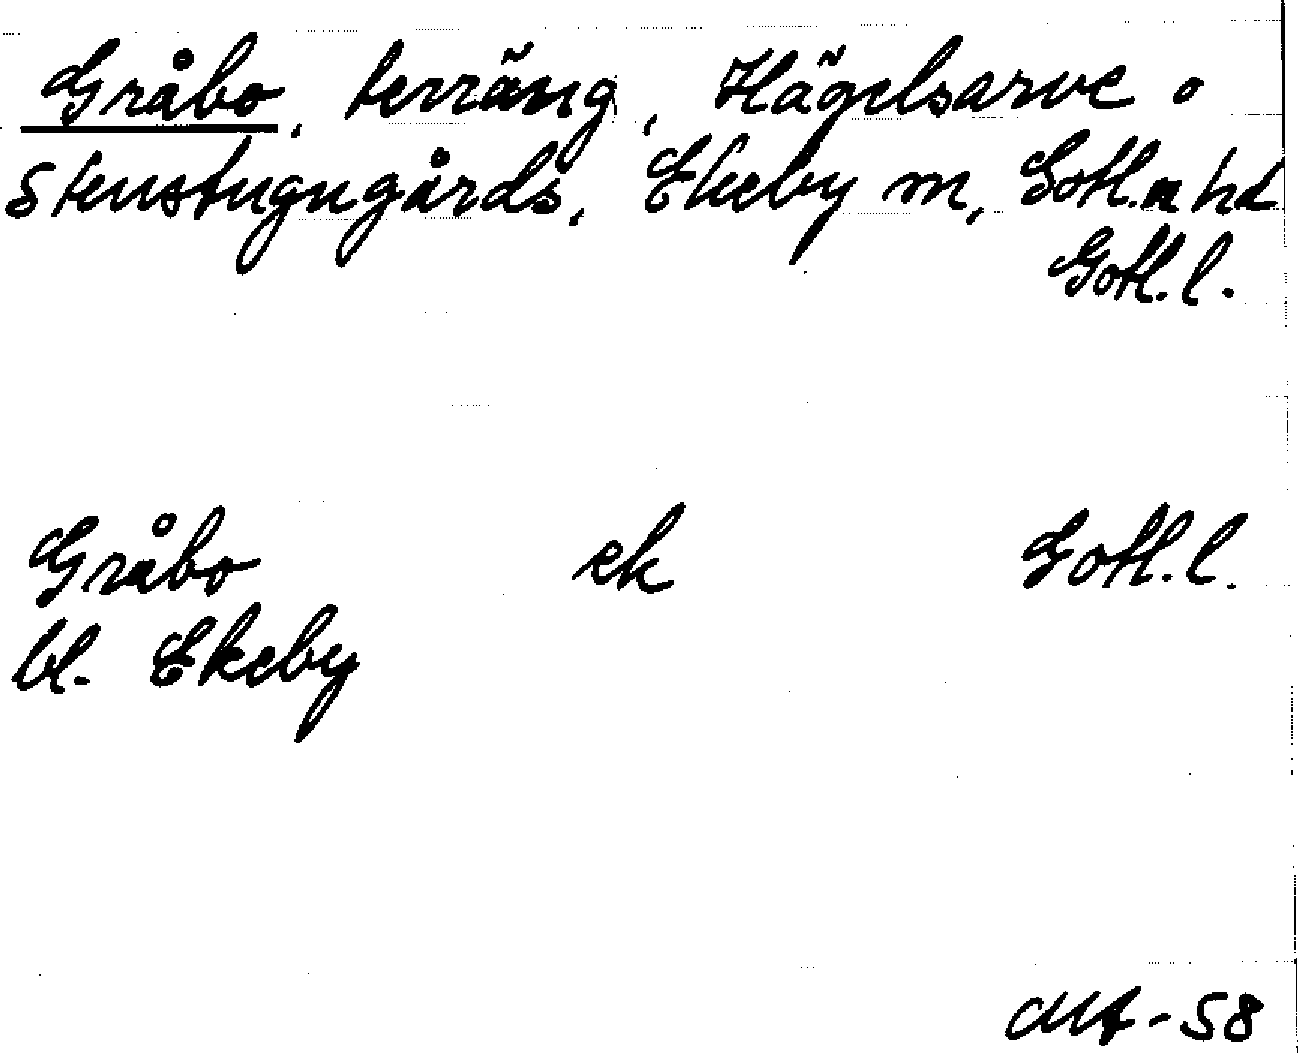 Gråbo, terräng, Hägelsarve o
Stenstugugårds, Ekeby sn, Gotl. n hd
Gotl. l.
Gråbo ek Gotl. l.
bl. Ekeby
-58